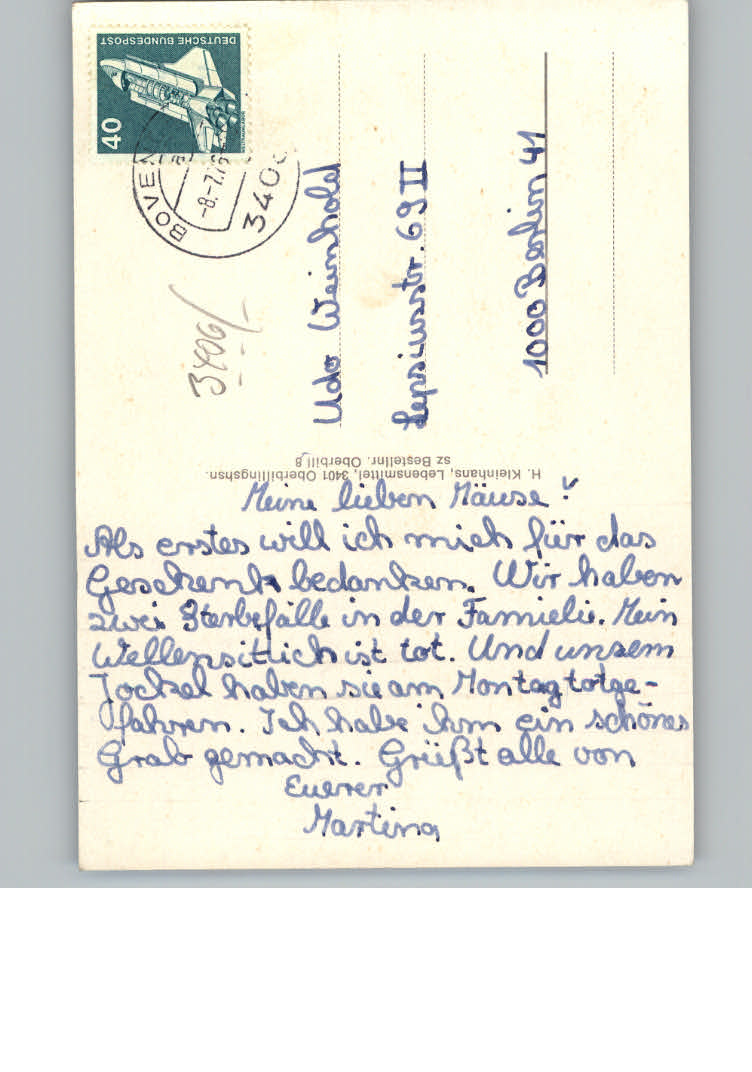 Meine lieben Mäuse!
Als erstes will ich mich für das
Geschenk bedanken. Wir haben
zwei Sterbefälle in der Famielie. Mein
Wellensittich ist tot. Und unsern
Jockel haben sie am Montag totge-
fahren. Ich habe ihm ein schönes
Grab gemacht. Grüßt alle von
Euerer
Martina
H. Kleinhans, Lebensmittel, 3401 Oberbillingshsn.
sz Bestellnr. Oberbill 8
Udo Weinhold
Lepsiusstr. 69 II
1000 Berlin 41
3406/
DEUTSCHE BUNDESPOST
40
BOVEN
-8.-7.7
340